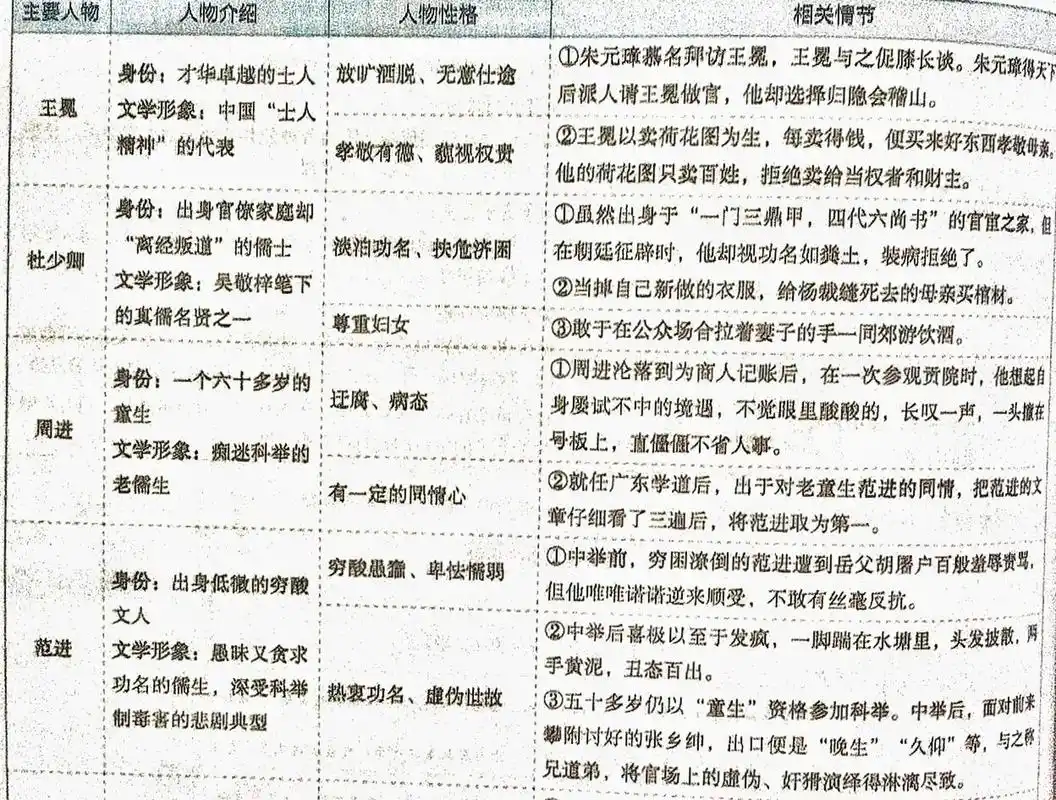 主要人物 人物介绍 人物性格 相关情节
王冕
身份：才华卓越的士人
文学形象：中国“士人
精神”的代表
放旷洒脱、无意仕途
①朱元璋慕名拜访王冕，王冕与之促膝长谈。朱元璋得天下
后派人请王冕做官，他却选择归隐会稽山。
孝敬有德、藐视权贵
②王冕以卖荷花图为生，每卖得钱，便买来好东西孝敬母亲。
他的荷花图只卖百姓，拒绝卖给当权者和财主。
杜少卿
身份：出身官僚家庭却
“离经叛道”的儒士
文学形象：吴敬梓笔下
的真儒名贤之一
淡泊功名、扶危济困
①虽然出身于“一门三鼎甲，四代六尚书”的官宦之家，但
在朝廷征辟时，他却视功名如粪土，装病拒绝了。
②当掉自己新做的衣服，给杨裁缝死去的母亲买棺材。
尊重妇女
③敢于在公众场合拉着妻子的手一同郊游饮酒。
周进
身份：一个六十多岁的
童生
文学形象：痴迷科举的
老儒生
迂腐、病态
①周进沦落到为商人记账后，在一次参观贡院时，他想起自
身屡试不中的境遇，不觉眼里酸酸的，长叹一声，一头撞在
号板上，直僵僵不省人事。
有一定的同情心
②就任广东学道后，出于对老童生范进的同情，把范进的文
章仔细看了三遍后，将范进取为第一。
范进
身份：出身低微的穷酸
文人
文学形象：愚昧又贪求
功名的儒生，深受科举
制毒害的悲剧典型
穷酸愚蠢、卑怯懦弱
①中举前，穷困潦倒的范进遭到岳父胡屠户百般羞辱责骂，
但他唯唯诺诺逆来顺受，不敢有丝毫反抗。
热衷功名、虚伪世故
②中举后喜极以至于发疯，一脚踹在水塘里，头发披散，两
手黄泥，丑态百出。
③五十多岁仍以“童生”资格参加科举。中举后，面对前来
攀附讨好的张乡绅，出口便是“晚生”“久仰”等，与之称
兄道弟，将官场上的虚伪、奸猾演绎得淋漓尽致。